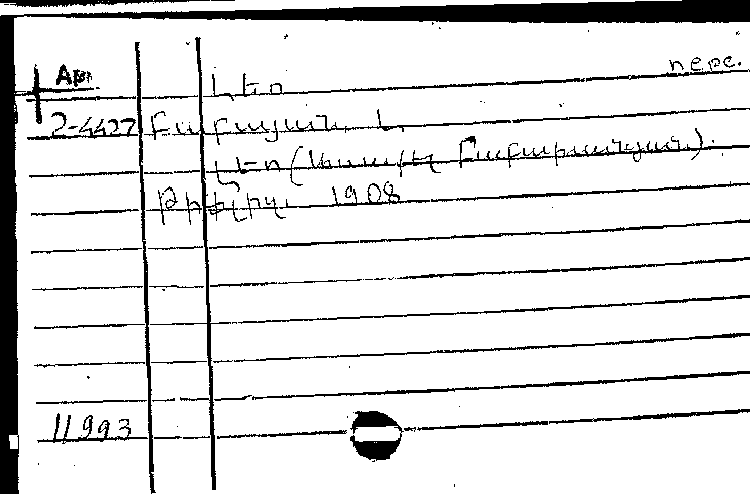 Ар
Լեո
пере.
2-4427 Բաբայան, Լ.
Լեո (Առաքել Բաբախանյան).
Թիֆլիզ. 1908
11993